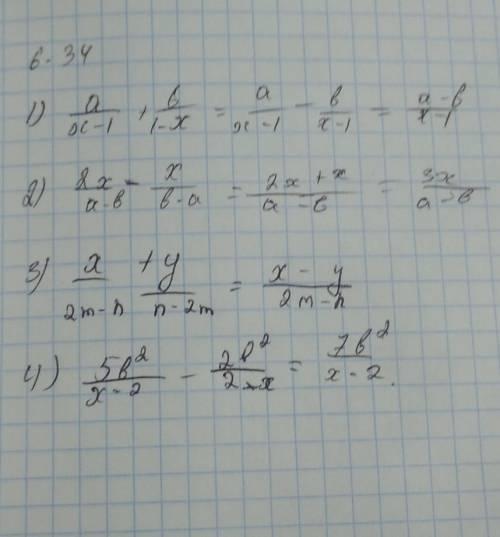 6.34
1) a/(x-1) + b/(1-x) = a/(x-1) - b/(x-1) = (a-b)/(x-1)
2) 2x/(a-b) - x/(b-a) = (2x+x)/(a-b) = 3x/(a-b)
3) x/(2m-n) + y/(n-2m) = (x-y)/(2m-n)
4) 5b²/(x-2) - 2b²/(2-x) = 7b²/(x-2).